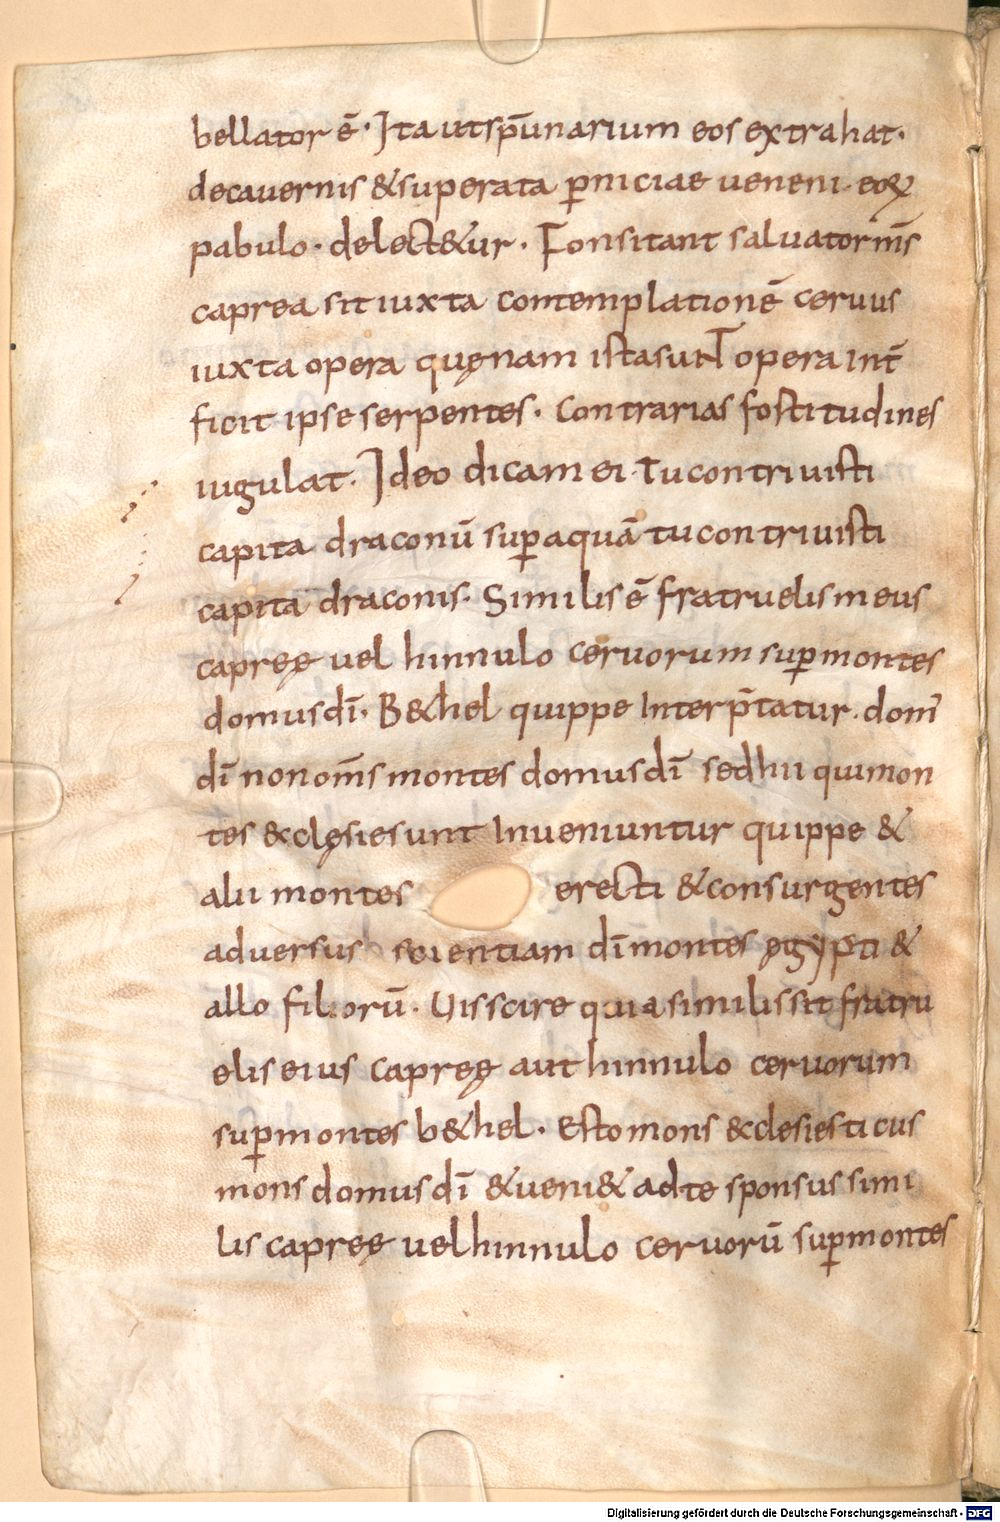 bellator ē· Ita ut sp̄u narium eos extrahat·
de cavernis & superata p̱niciae veneni· eoꝝ
pabulo· delect&ur· Fonsitant salvator nr̄s
caprea sit iuxta contemplationē ceruus
iuxta opera quęnam ista sunt opera int̄
ficit ipse serpentes· contrarias fostitudines
iugulat· Ideo dicam ei· tu contriuisti
capita draconū suꝑ aquā tu contriuisti
capita draconis· Similis ē fratruelis meus
capreę uel hinnulo ceruorum suꝑ montes
domus dī· B&hel quippe interp̄tatur· dom'
dī non om̄s montes domus dī sed hii qui mon
tes &clęsie sunt Inueniuntur quippe &
alii montes erecti & consurgentes
adversus scientiam dī montes ęgypti &
allo filiorū· Uis scire quia similis sit fratru
elis eius capreę aut hinnulo ceruorum
suꝑ montes b&hel· Esto mons &clesiesticus
mons domus dī & veni& ad te sponsus simi
lis capreę uel hinnulo ceruorū suꝑ montes
Digitalisierung gefördert durch die Deutsche Forschungsgemeinschaft - DFG